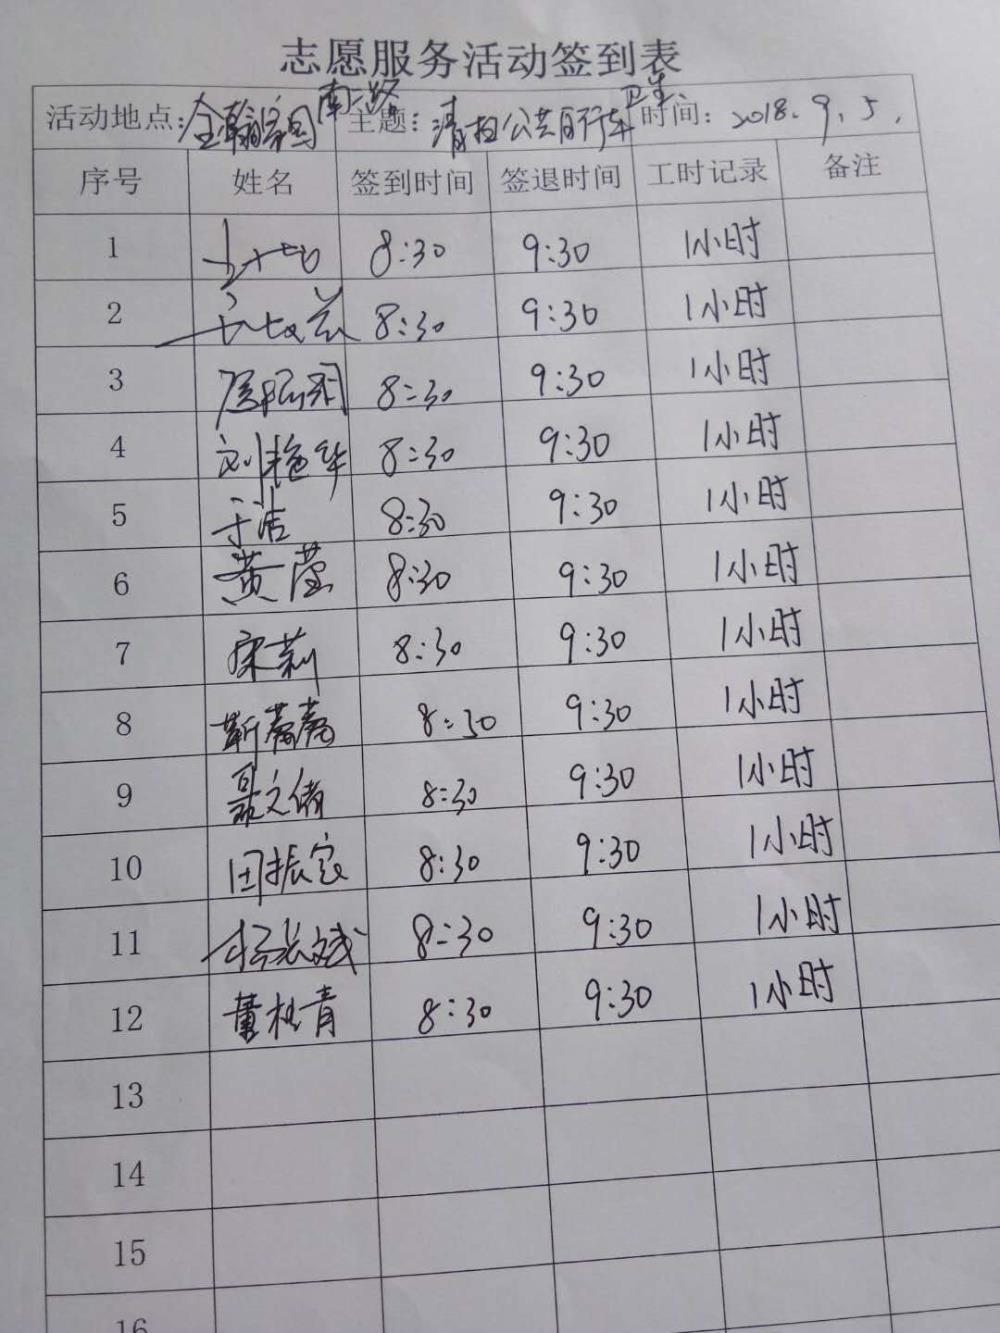 志愿服务活动签到表
活动地点: 南二路 主题: 清扫公共自行车卫生 时间: 2018.9.5.
序号 姓名 签到时间 签退时间 工时记录 备注
1 8:30 9:30 1小时
2 8:30 9:30 1小时
3 8:30 9:30 1小时
4 刘艳华 8:30 9:30 1小时
5 于洁 8:30 9:30 1小时
6 黄莹 8:30 9:30 1小时
7 宋莉 8:30 9:30 1小时
8 8:30 9:30 1小时
9 聂文倩 8:30 9:30 1小时
10 田振宽 8:30 9:30 1小时
11 8:30 9:30 1小时
12 董桂青 8:30 9:30 1小时
13
14
15
16